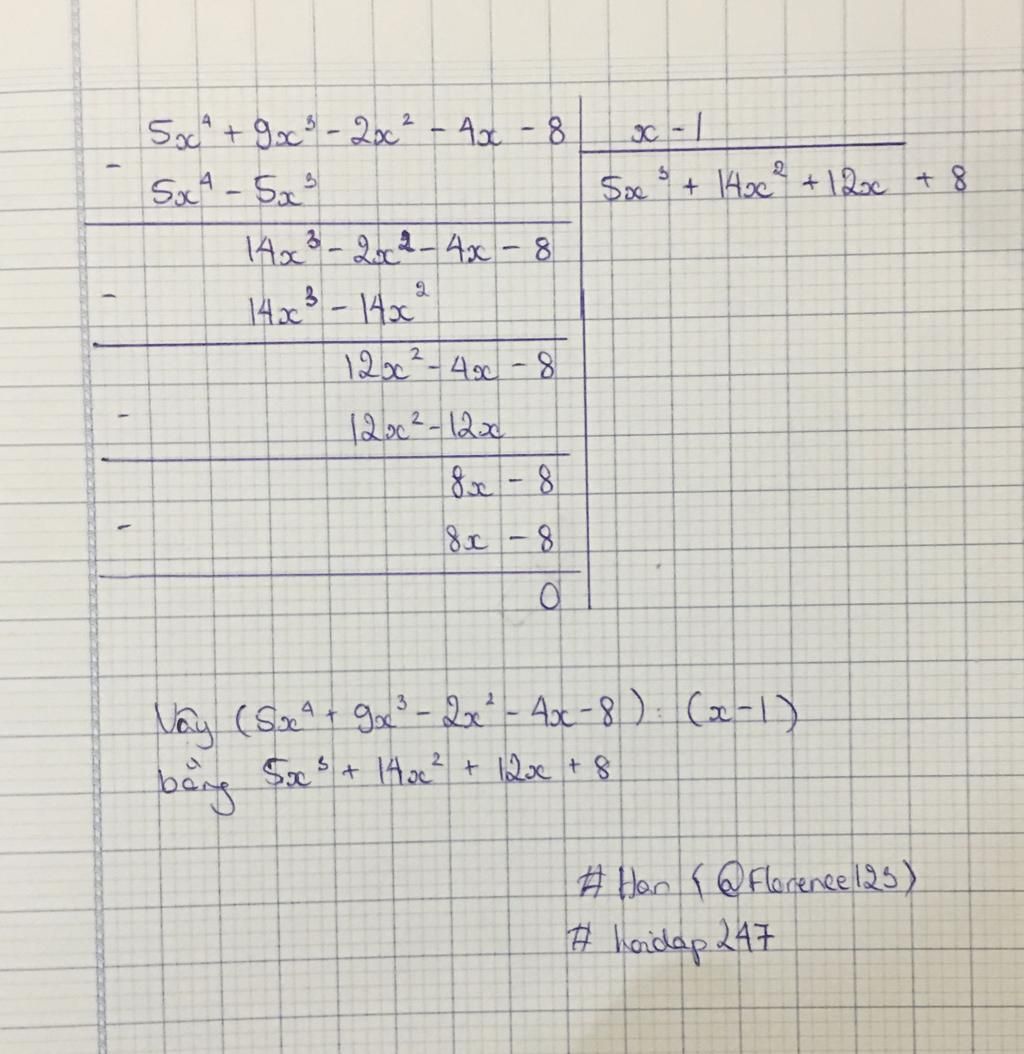 5x⁴ + 9x³ - 2x² - 4x - 8 | x - 1
- 5x⁴ - 5x³ | 5x³ + 14x² + 12x + 8
14x³ - 2x² - 4x - 8
- 14x³ - 14x²
12x² - 4x - 8
- 12x² - 12x
8x - 8
- 8x - 8
0
Vậy (5x⁴ + 9x³ - 2x² - 4x - 8) : (x - 1)
bằng 5x³ + 14x² + 12x + 8
# Han (@Florence123)
# hoidap247